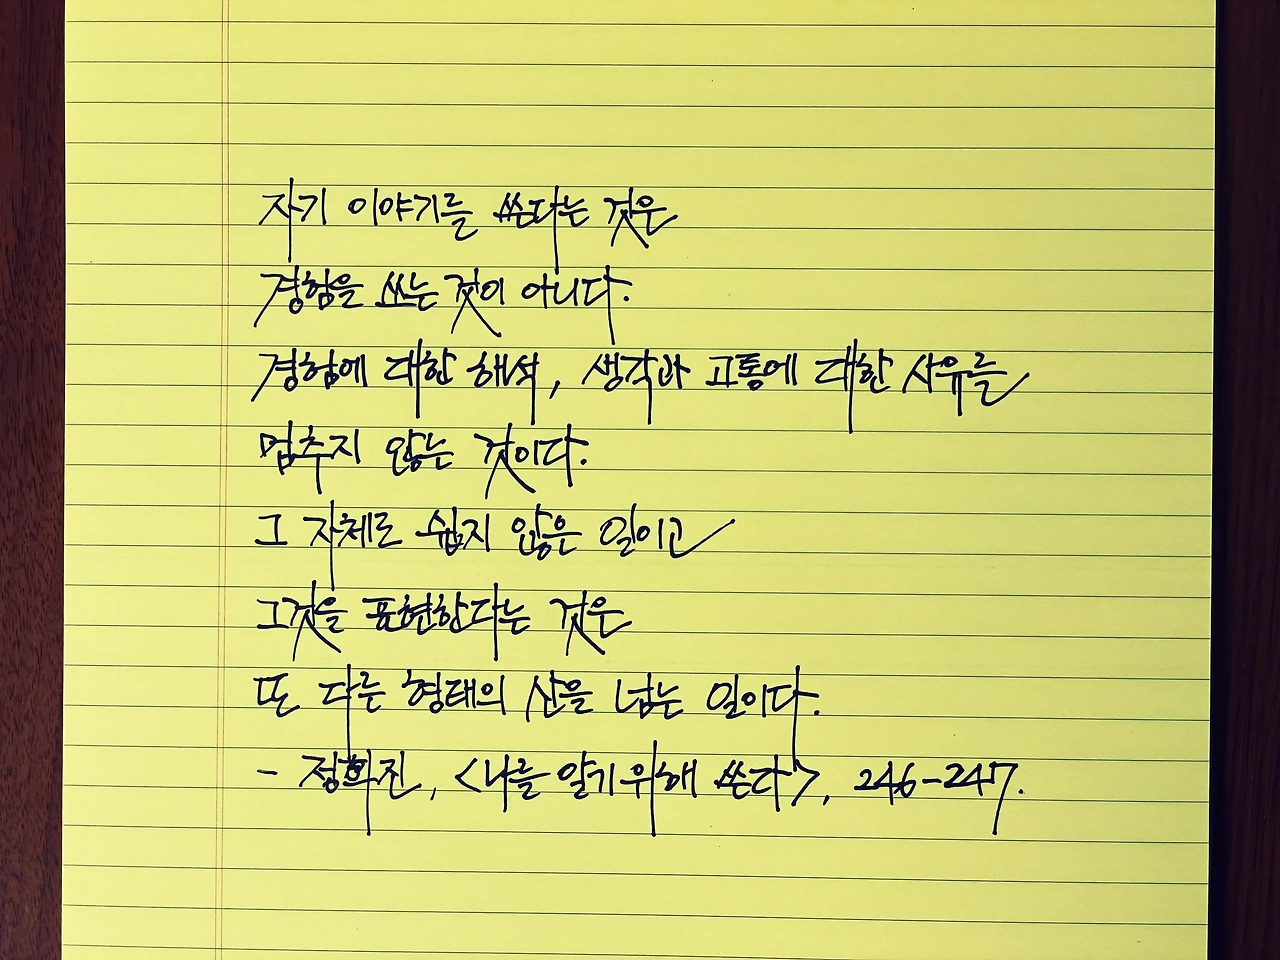 자기 이야기를 쓴다는 것은
경험을 쓰는 것이 아니다.
경험에 대한 해석, 생각과 고통에 대한 사유를
멈추지 않는 것이다.
그 자체로 쉽지 않은 일이고
그것을 표현한다는 것은
또 다른 형태의 산을 넘는 일이다.
- 정희진, <나를 알기 위해 쓴다>, 246-247.